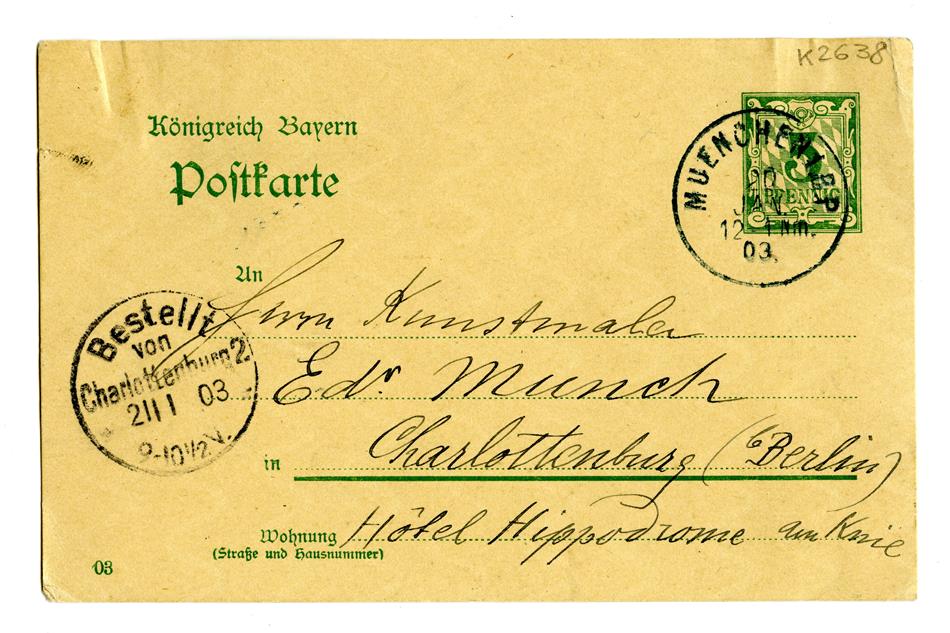 K2638
Königreich Bayern
Postkarte
MUENCHEN 1 B.P.
20
JAN.
12-1 Nm.
03.
5
PFENNIG
An
Herrn Kunstmaler
Edv Munch
Bestellt
von
Charlottenburg 2
21 1 03
9-10½ V.
in Charlottenburg (Berlin)
Wohnung Hôtel Hippodrome am Knie
(Straße und Hausnummer)
03